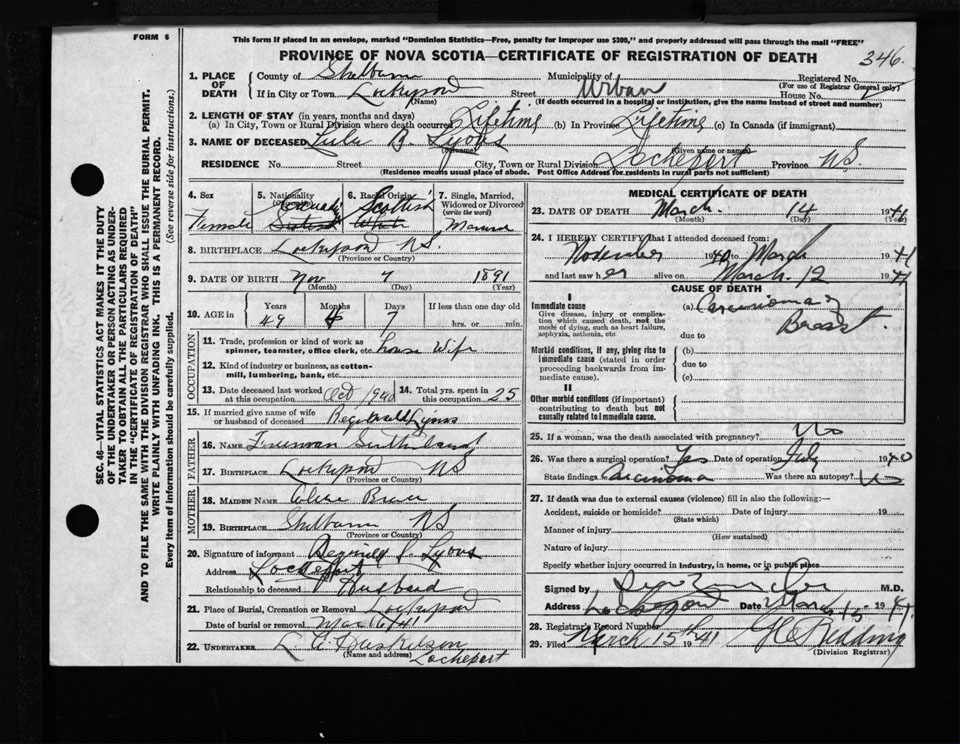 FORM 6
This form if placed in an envelope, marked "Dominion Statistics—Free, penalty for improper use $300," and properly addressed will pass through the mail "FREE"
PROVINCE OF NOVA SCOTIA—CERTIFICATE OF REGISTRATION OF DEATH
346.
SEC. 46—VITAL STATISTICS ACT MAKES IT THE DUTY
OF THE UNDERTAKER OR PERSON ACTING AS UNDER-
TAKER TO OBTAIN ALL THE PARTICULARS REQUIRED
IN THE "CERTIFICATE OF REGISTRATION OF DEATH"
AND TO FILE THE SAME WITH THE DIVISION REGISTRAR WHO SHALL ISSUE THE BURIAL PERMIT.
WRITE PLAINLY WITH UNFADING INK. THIS IS A PERMANENT RECORD.
Every item of information should be carefully supplied. (See reverse side for instructions.)
1. PLACE OF DEATH
County of Shelburne Municipality of Registered No.
(For use of Registrar General only)
If in City or Town Lockeport Street Urban House No.
(Name) (If death occurred in a hospital or institution, give the name instead of street and number)
2. LENGTH OF STAY (in years, months and days)
(a) In City, Town or Rural Division where death occurred Lifetime (b) In Province Lifetime (c) In Canada (if immigrant)
3. NAME OF DECEASED Lulu B. Lyons
(Surname) (Given name or names)
RESIDENCE No. Street City, Town or Rural Division Lockeport Province N.S.
(Residence means usual place of abode. Post Office Address for residents in rural parts not sufficient)
4. Sex Female
5. Nationality
6. Racial Origin Scottish
7. Single, Married, Widowed or Divorced (write the word) Married
8. BIRTHPLACE Lockeport N.S.
(Province or Country)
9. DATE OF BIRTH Nov 7 1891
(Month) (Day) (Year)
10. AGE in Years Months Days If less than one day old
49 4 7 hrs. or min.
OCCUPATION
11. Trade, profession or kind of work as
spinner, teamster, office clerk, etc. House Wife
12. Kind of industry or business, as cotton-
mill, lumbering, bank, etc.
13. Date deceased last worked at this occupation Oct 1940
14. Total yrs. spent in this occupation 25
15. If married give name of wife
or husband of deceased Reginald Lyons
FATHER
16. NAME Freeman Sutherland
17. BIRTHPLACE Lockeport NS
(Province or Country)
MOTHER
18. MAIDEN NAME
19. BIRTHPLACE Shelburne NS
(Province or Country)
20. Signature of informant Reginald Lyons
Address Lockeport
Relationship to deceased Husband
21. Place of Burial, Cremation or Removal Lockeport
Date of burial or removal Mar 16/41
22. UNDERTAKER
(Name and address) Lockeport
MEDICAL CERTIFICATE OF DEATH
23. DATE OF DEATH March 14 1941
(Month) (Day) (Year)
24. I HEREBY CERTIFY that I attended deceased from:
November 1940 to March 1941
and last saw her alive on March 12 1941
CAUSE OF DEATH
I
Immediate cause (a) Carcinoma of
Give disease, injury or complica-
tion which caused death, not the
mode of dying, such as heart failure,
asphyxia, asthenia, etc
Breast.
due to
Morbid conditions, if any, giving rise to
immediate cause (stated in order
proceeding backwards from im-
mediate cause).
(b)
due to
(c)
II
Other morbid conditions (if important)
contributing to death but not
causally related to immediate cause.
25. If a woman, was the death associated with pregnancy? No
26. Was there a surgical operation? Yes Date of operation July 1940
State findings Carcinoma Was there an autopsy? No
27. If death was due to external causes (violence) fill in also the following:—
Accident, suicide or homicide? Date of injury 19
(State which)
Manner of injury
(How sustained)
Nature of injury
Specify whether injury occurred in industry, in home, or in public place
Signed by M.D.
Address Lockeport Date March 15 1941
28. Registrar's Record Number
29. Filed March 15th 41
(Division Registrar)